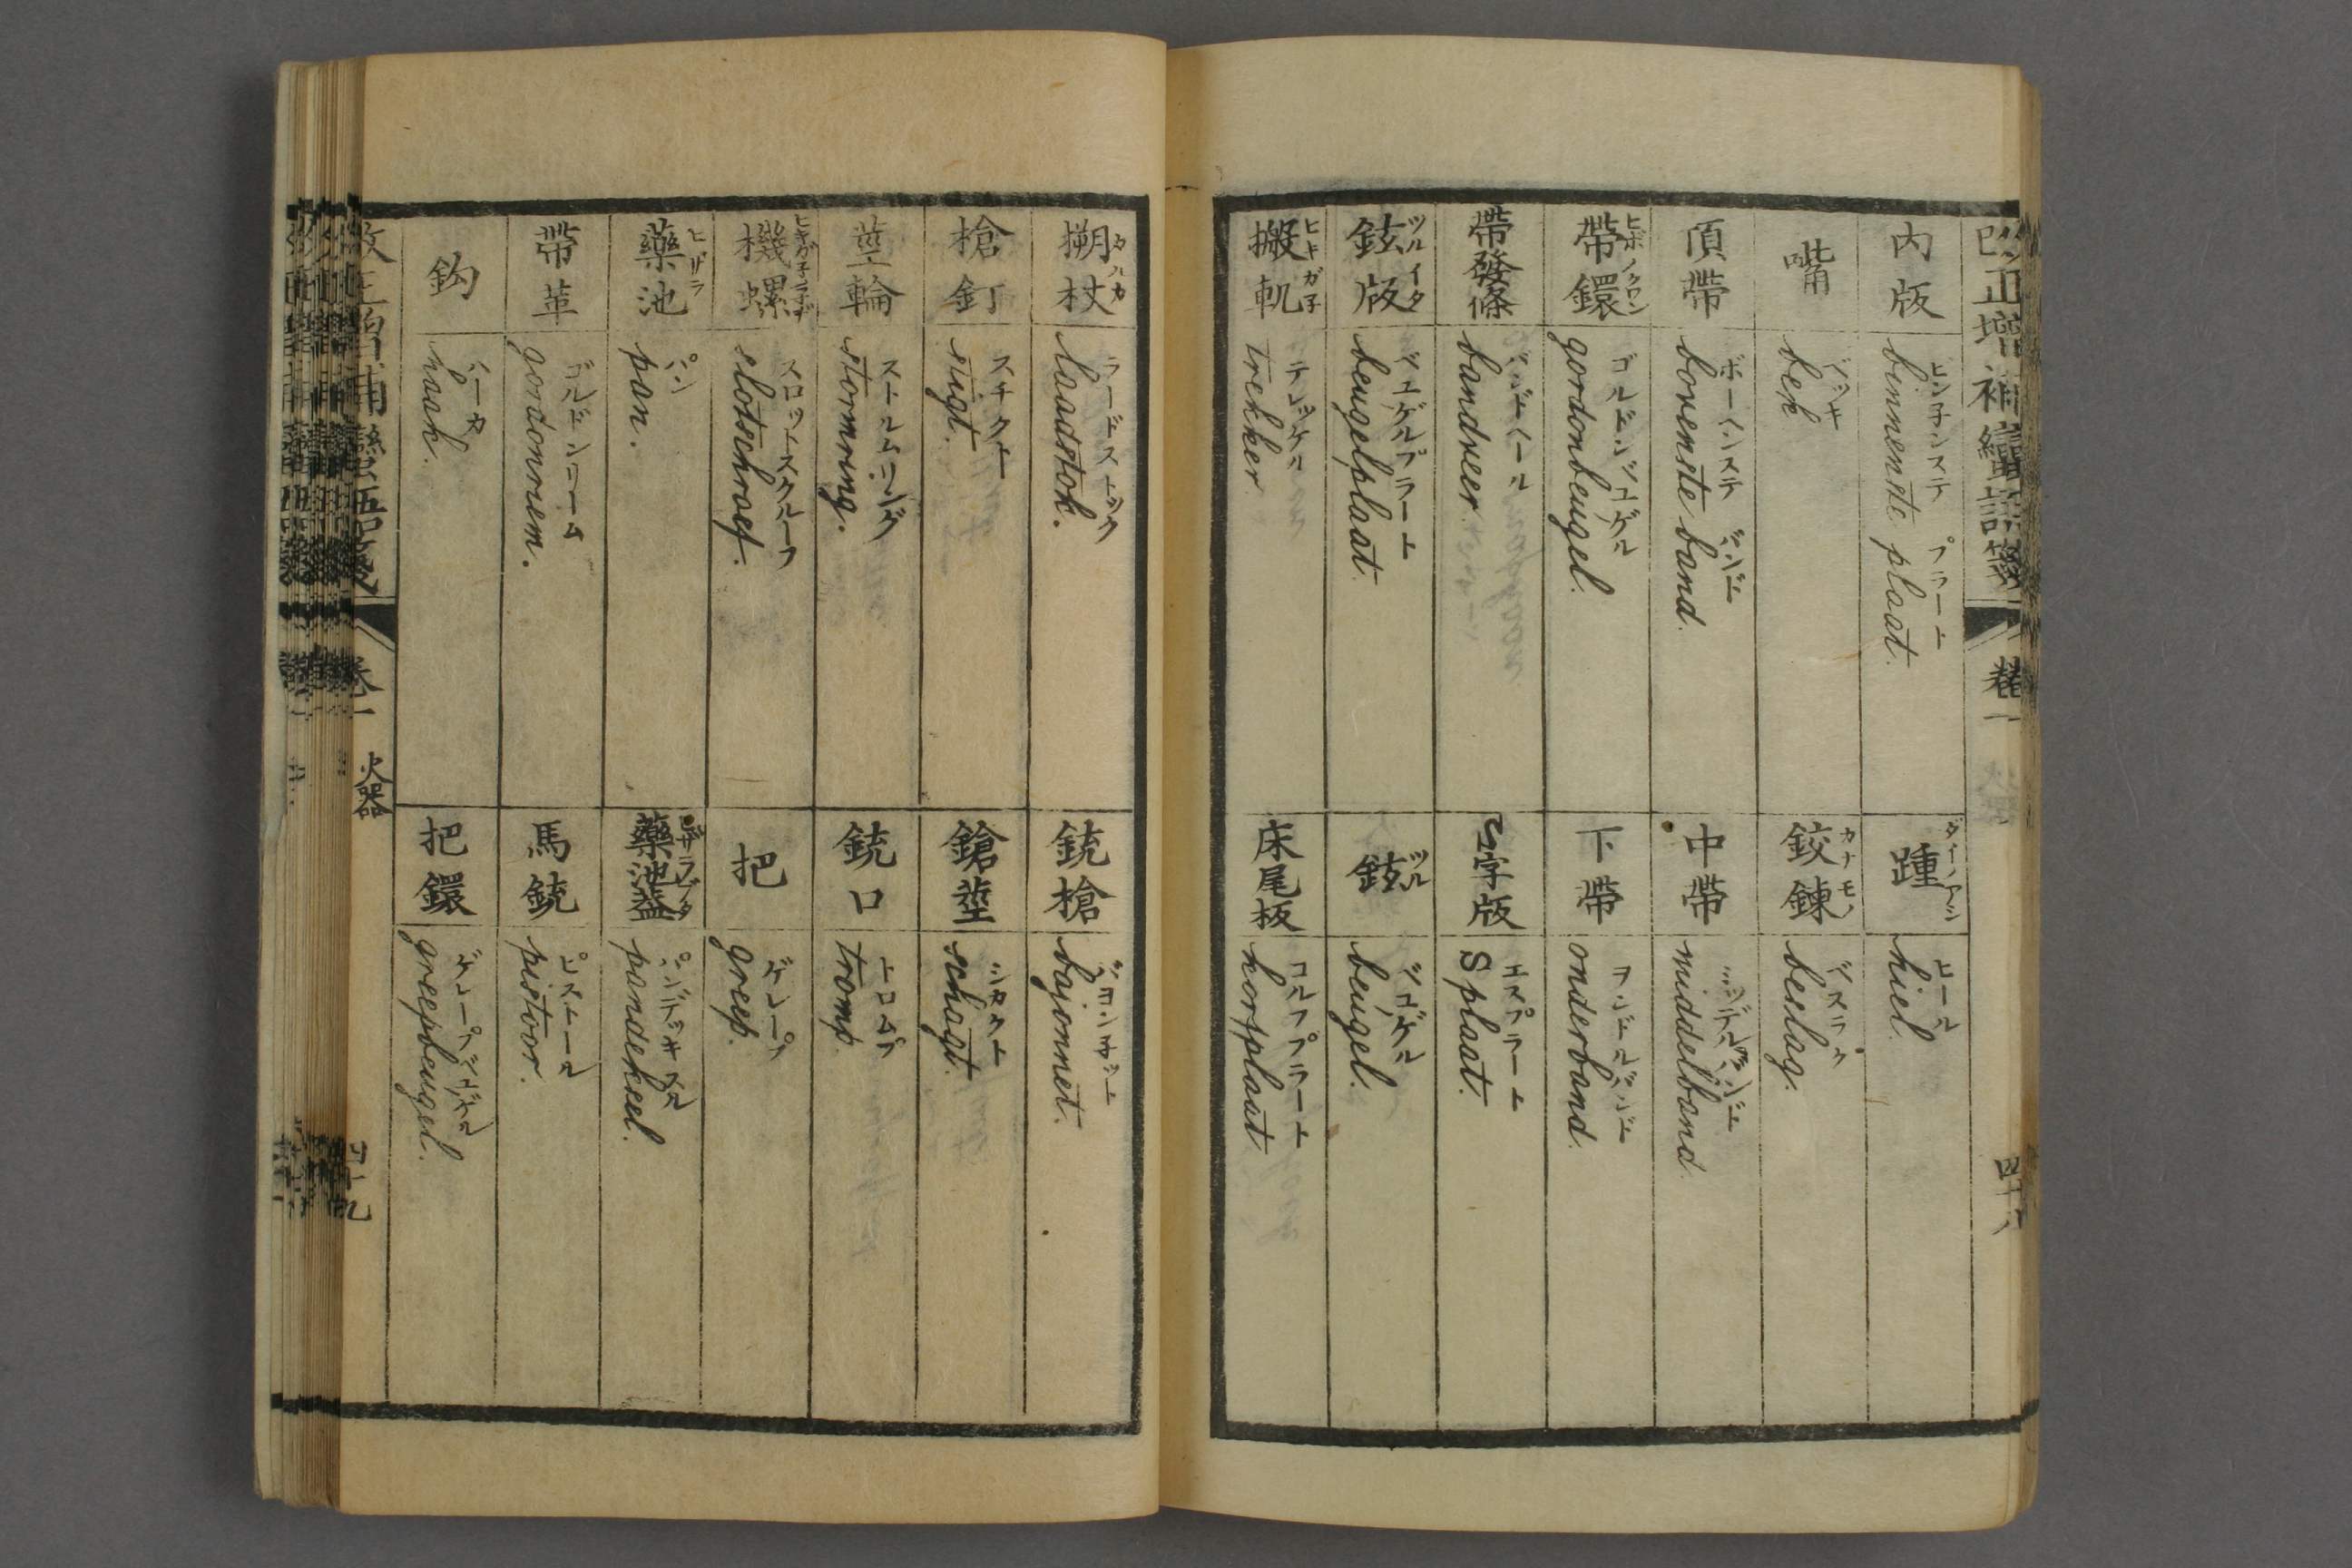 改正増補蠻語箋
卷一
四十八
内版
ビンネンステ プラート
binnenste plaat.
嘴
ベッキ
bek
頂帶
ボーヘンステ バンド
bovenste band.
ヒボノクワン
帶鐶
ゴルドンビュゲル
gordonbeugel.
帶發條
バンドヘール
bandveer.
ツルイタ
鉉版
ビュゲルプラート
beugelplaat.
ヒキガネ
搬軏
テレッケル
trekker.
ダイノアシ
踵
ヒール
hiel.
カナモノ
鉸鍊
ベスラク
beslag.
中帶
ミッデルバンド
middelband.
下帶
ヲンドルバンド
onderband.
S字版
エスプラート
S plaat.
ツル
鉉
ビュゲル
beugel.
床尾板
コルフプラート
korfplaat
カルカ
搠杖
ラードストック
laadstok.
槍釘
スチフト
stigt.
莖輪
ストルムリング
stormring.
ヒキガネラ子ヂ
機螺
スロットスクルーフ
slotschroef.
ヒザラ
藥池
パン
pan.
帶革
ゴルドンリーム
gordonriem.
鈎
ハーカ
haak.
銃槍
バヨンネット
bajonnet.
鎗莖
シカクト
schagt.
銃口
トロムプ
tromp.
把
ゲレープ
greep.
ヒザラブタ
藥池蓋
パンデッキスル
pandeksel.
馬銃
ピストール
pistoor.
把鐶
ゲレープビュゲル
greepbeugel.
改正増補蠻語箋
卷一
火器
四十九